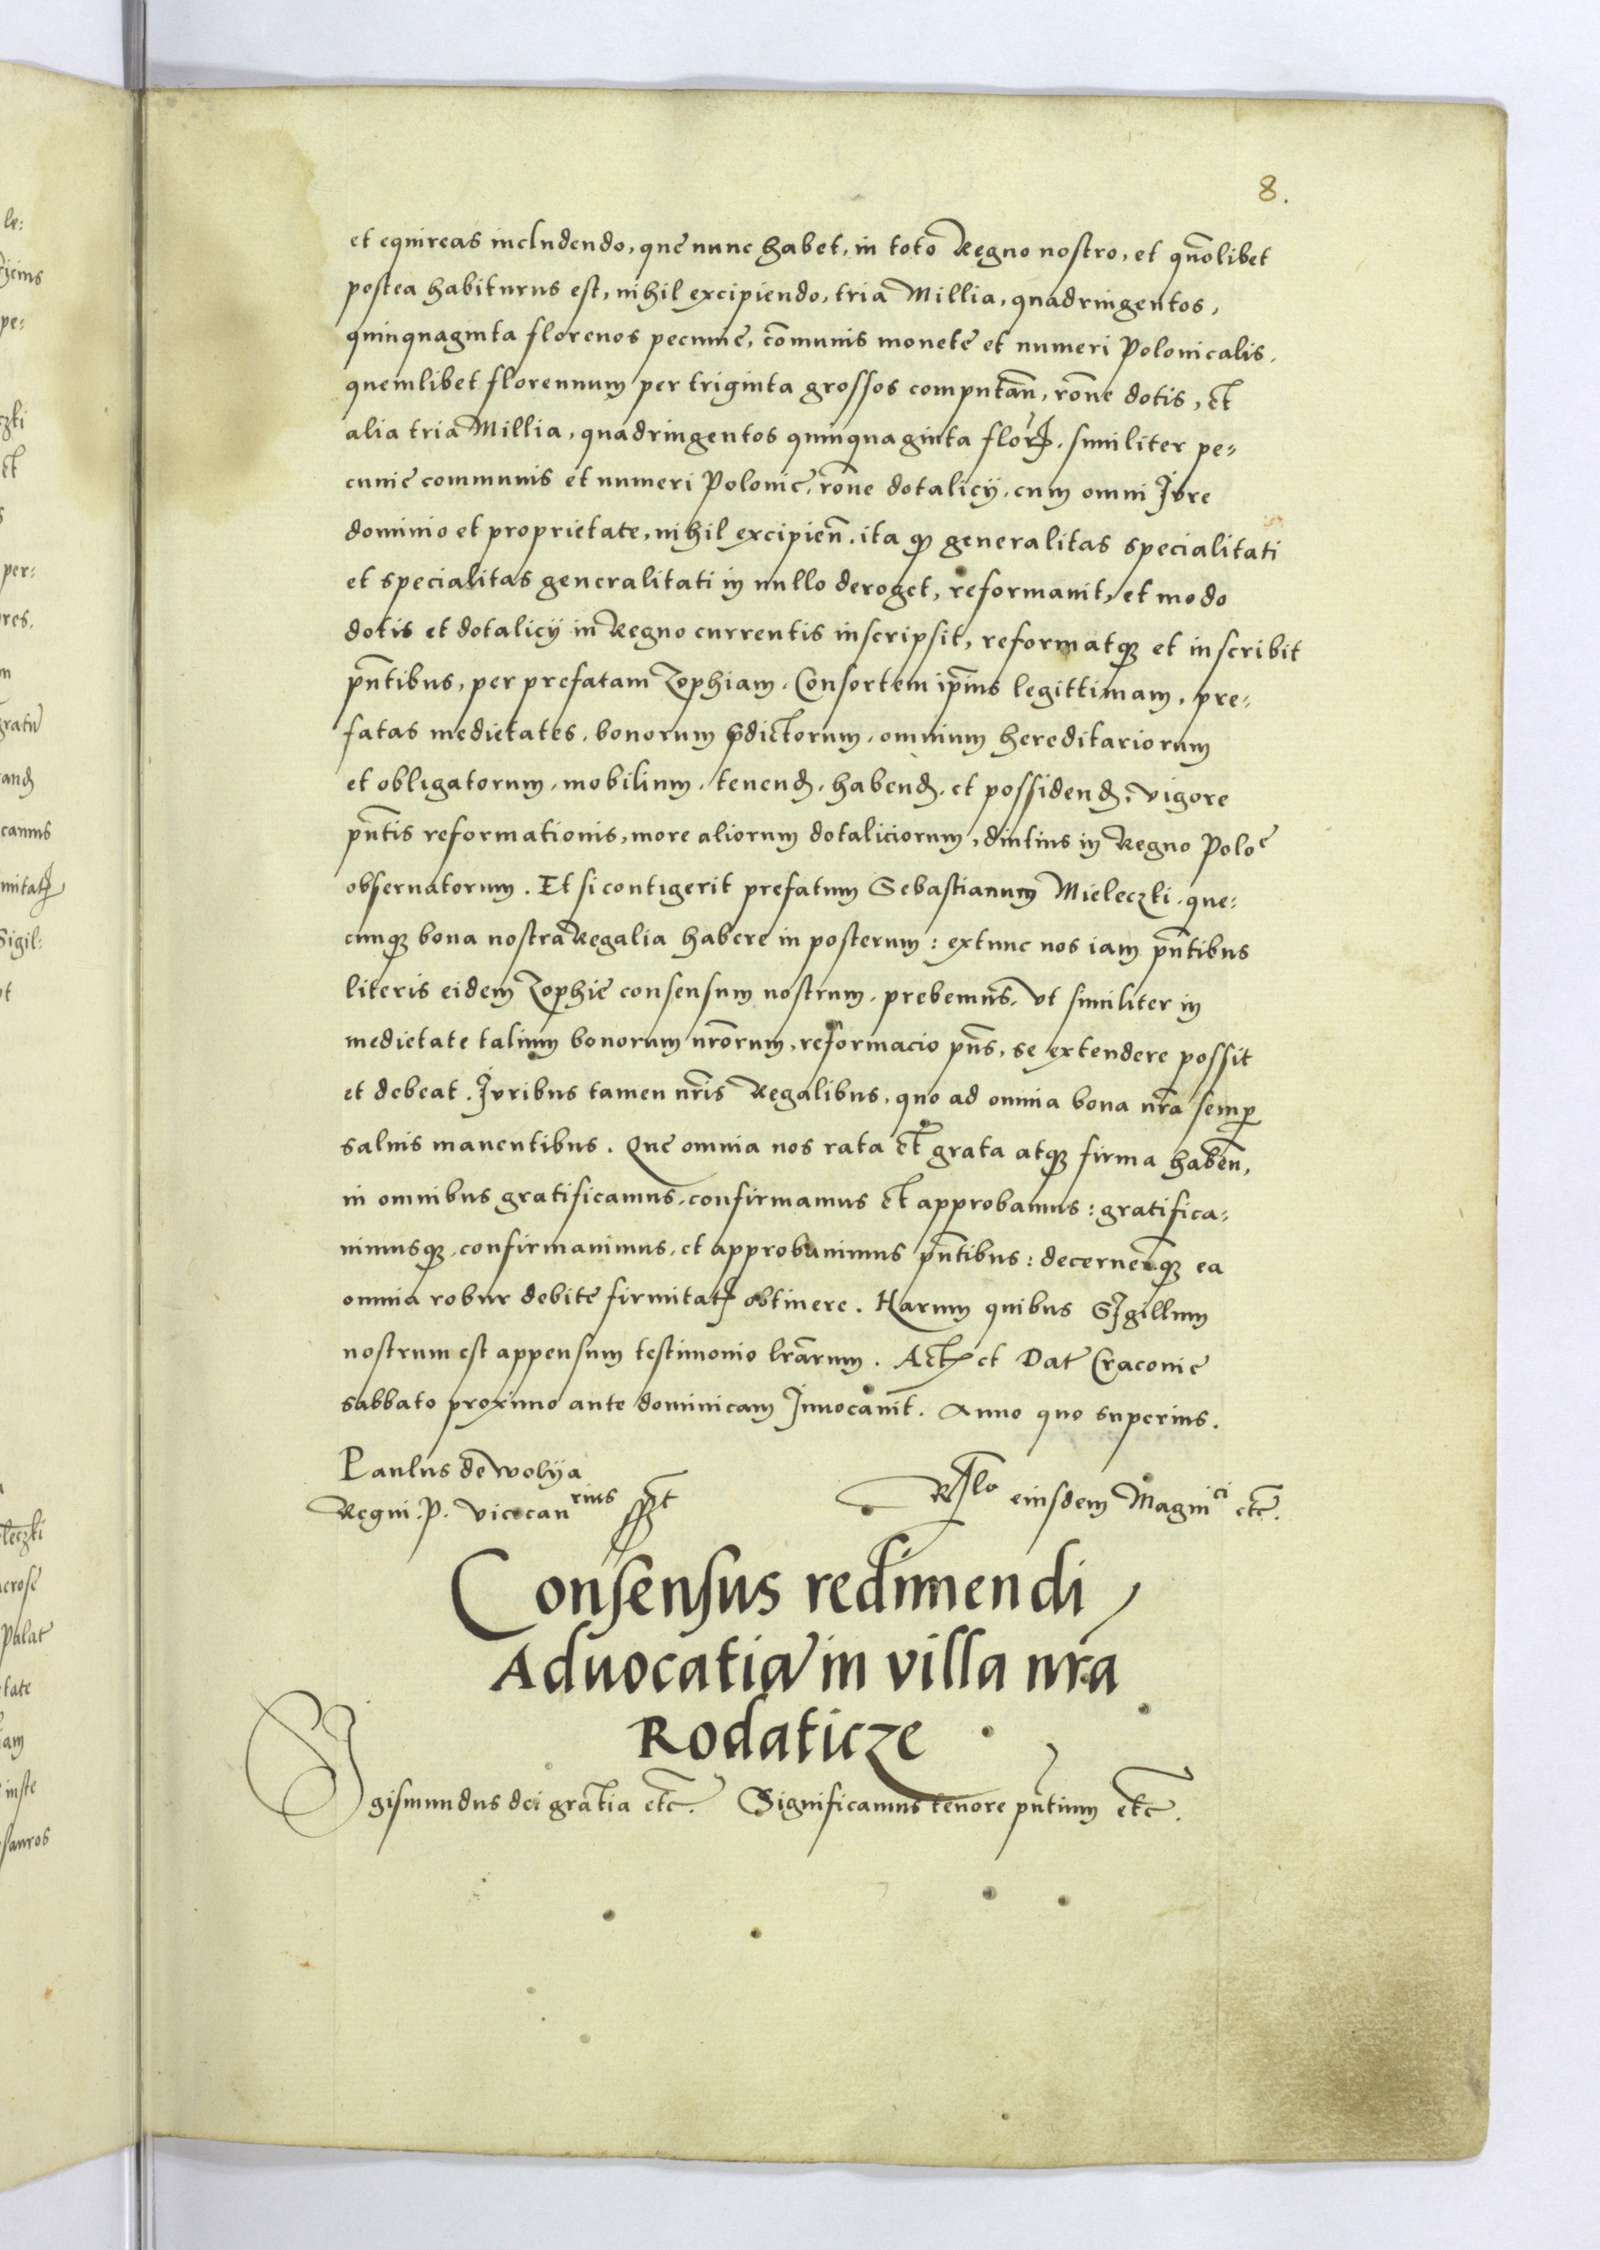 8.
et equireas includendo, que nunc habet, in toto Regno nostro, et quõlibet
postea habiturus est, nihil excipiendo, tria Millia, quadringentos,
quinquaginta florenos pecunie, cõmunis monete et numeri Polonicalis,
quemlibet florennum per triginta grossos computañ, rõne dotis, et
alia tria Millia, quadringentos quinquaginta flor. similiter pe-
cunie communis et numeri Polonie, rõne dotalicij, cum omni Jvre
dominio et proprietate, nihil excipieñ. ita ꝙ generalitas specialitati
et specialitas generalitati in nullo deroget, reformauit, et modo
dotis et dotalicij in Regno currentis inscripsit, reformatqꝫ et inscribit
pñtibus, per prefatam Zophiam, Consortem ip̃ius legittimam, pre-
fatas medietates, bonorum p̃dictorum, omnium hereditariorum
et obligatorum, mobilium, tenend, habend, et possidend, vigore
pñtis reformationis, more aliorum dotaliciorum, diutius in Regno Poloe
obseruatorum. Et si contigerit prefatum Sebastianum Mieleczki, que-
cunqꝫ bona nostra Regalia habere in posterum: extunc nos iam pñtibus
literis eidem Zophie consensum nostrum, prebemus, vt similiter in
medietate talium bonorum nrõrum, reformacio pñs, se extendere possit
et debeat. Jvribus tamen nr̃is Regalibus, quo ad omnia bona nr̃a semꝑ
saluis manentibus. Que omnia nos rata et grata atqꝫ firma habeñ,
in omnibus gratificamus, confirmamus et approbamus: gratifica-
uimusqꝫ, confirmauimus, et approbauimus pñtibus: decerneñqꝫ ea
omnia robur debite firmitat obtinere. Harum quibus Sigillum
nostrum est appensum testimonio lrãrum. Act et Dat Craconie
sabbato proximo ante dominicam Jnuocauit. Anno quo superius.
Paulus de Wolija
Regni P. vicecanrius sst
Rlo eiusdem Magnici etc.
Consensus redimendi
Aduocatia in villa nr̃a
Rodaticze
Sigismundus dei gratia etc. Significamus tenore pñtium etc.